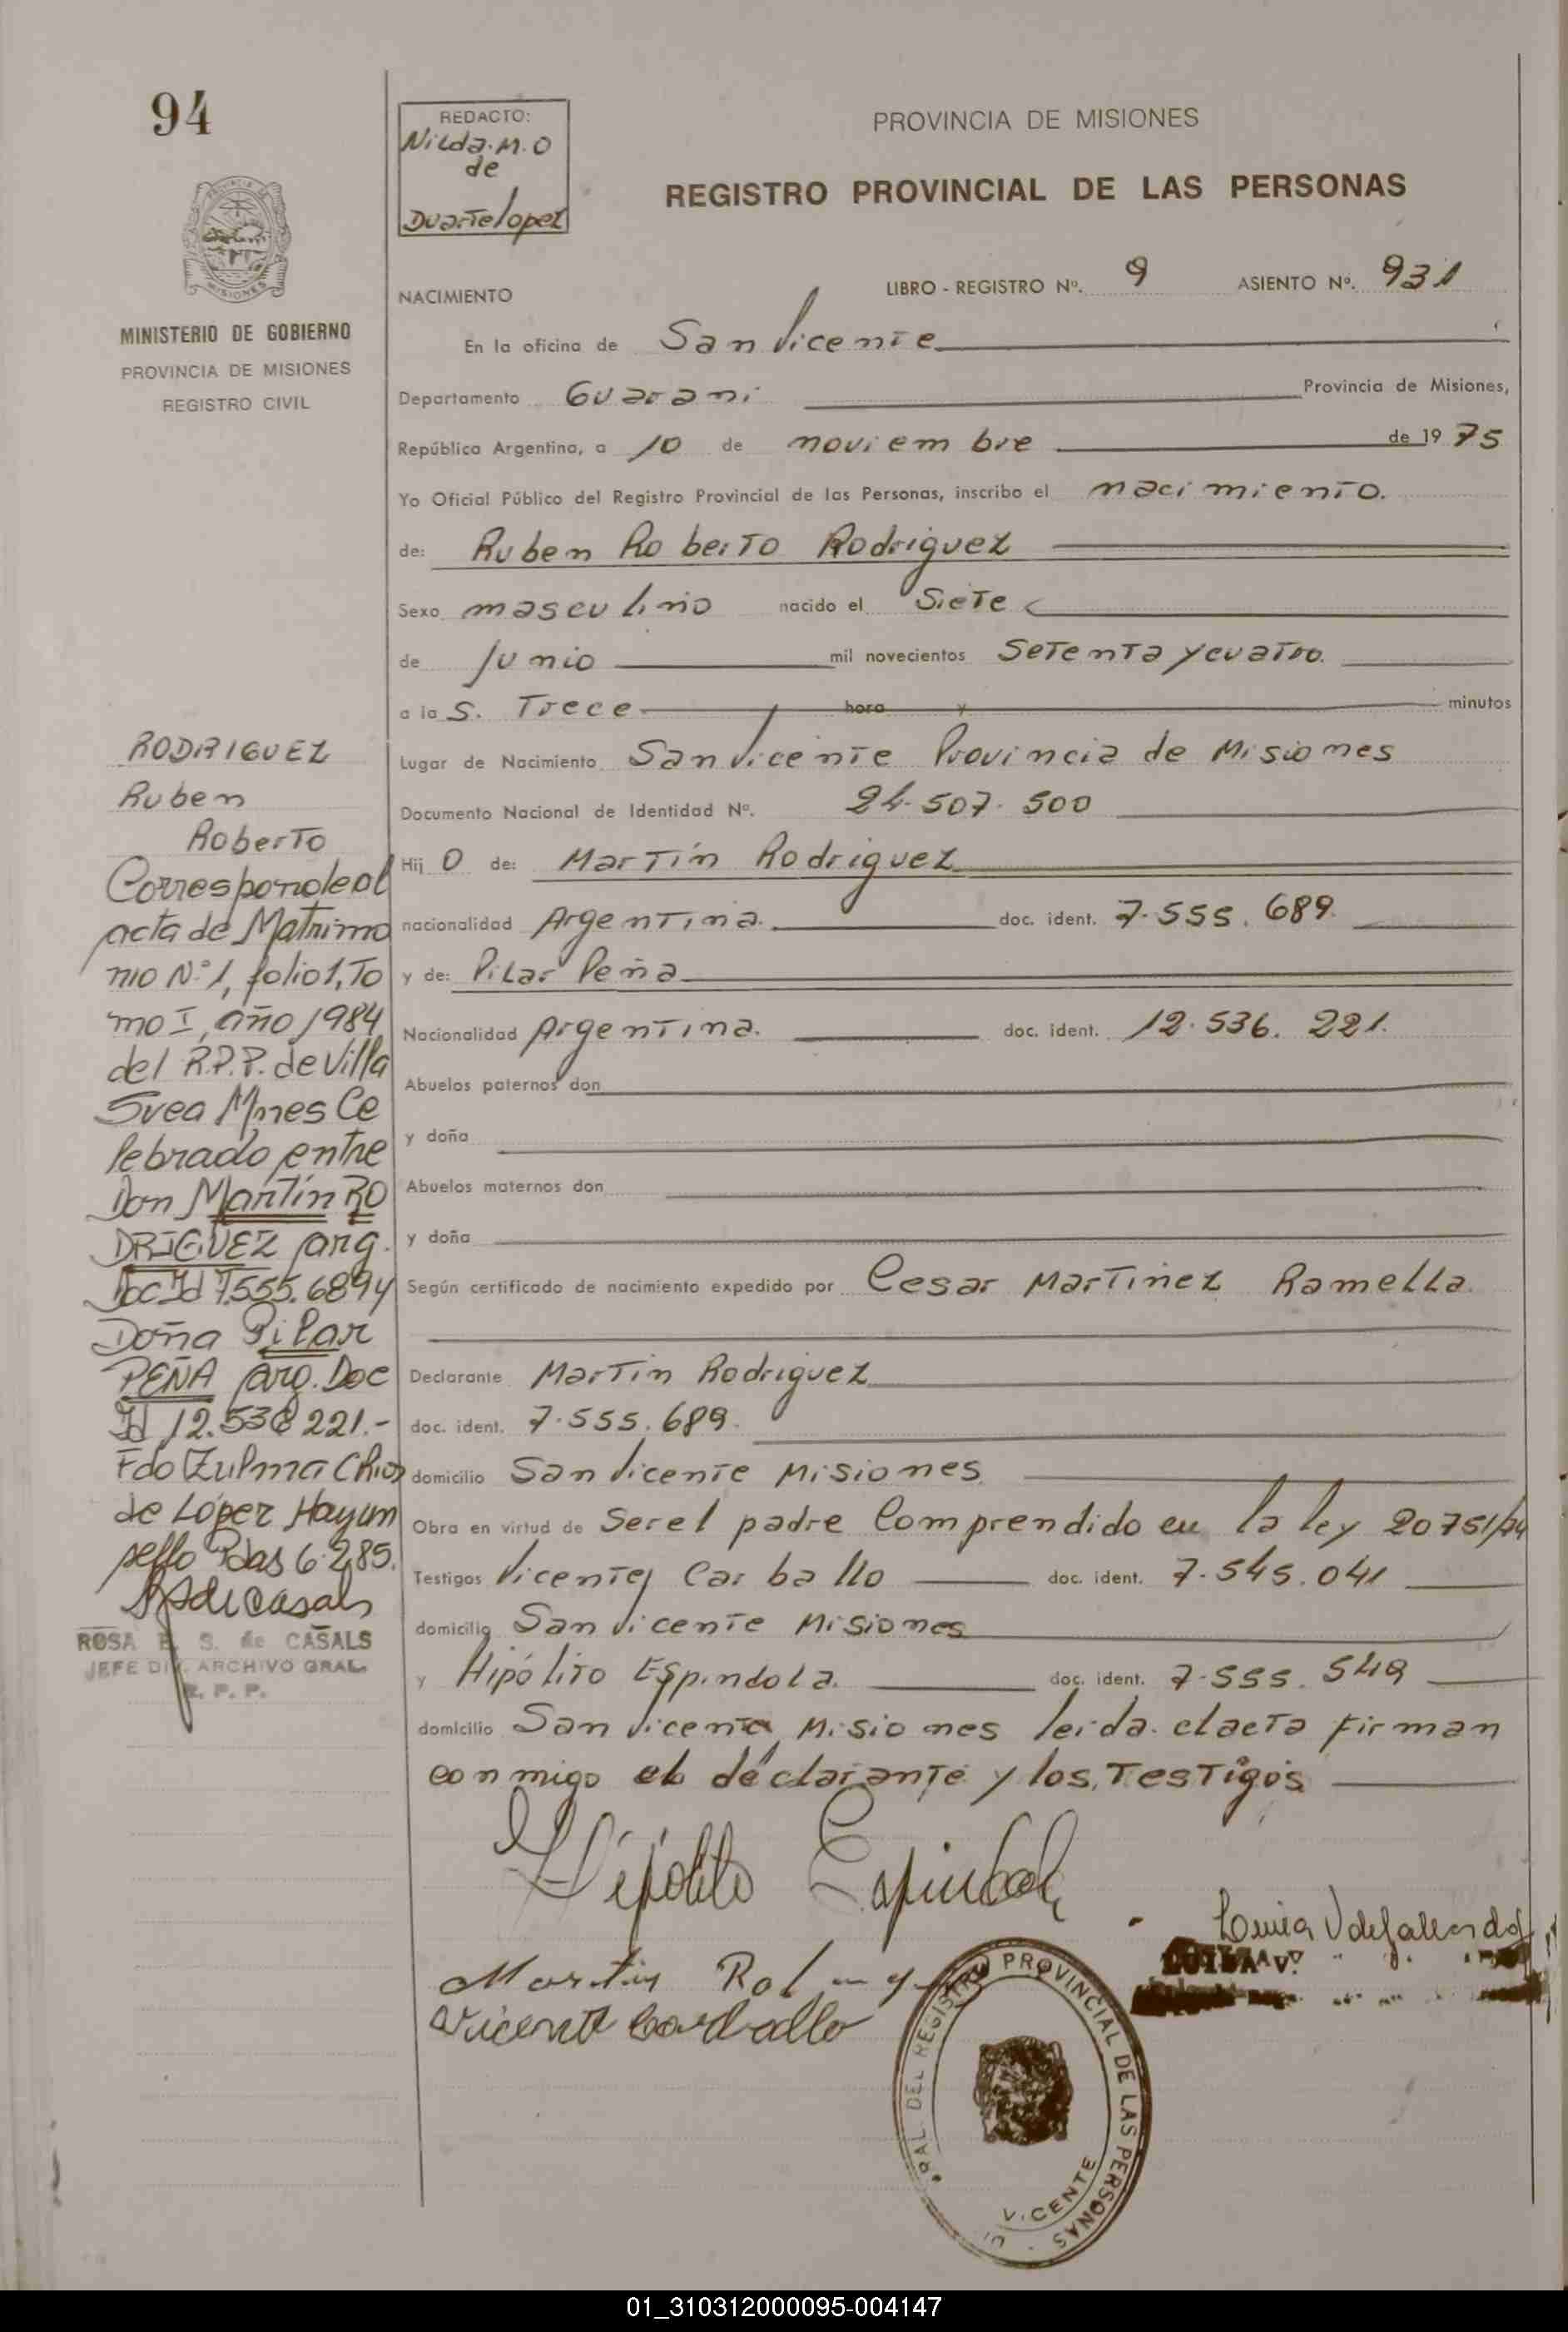 94
REDACTO:
Nilda. M. O
de
Duarte lopez
PROVINCIA DE MISIONES
REGISTRO PROVINCIAL DE LAS PERSONAS
MISIONES
MINISTERIO DE GOBIERNO
PROVINCIA DE MISIONES
REGISTRO CIVIL
NACIMIENTO
LIBRO - REGISTRO Nº. 9 ASIENTO Nº. 931
En la oficina de San Vicente
Departamento Guarani Provincia de Misiones,
República Argentina, a 10 de noviembre de 1975
Yo Oficial Público del Registro Provincial de las Personas, inscribo el nacimiento.
de: Ruben Roberto Rodriguez
Sexo masculino nacido el Siete
de Junio mil novecientos Setenta y cuatro.
a la S. Trece hora y minutos
Lugar de Nacimiento San Vicente Provincia de Misiones
Documento Nacional de Identidad Nº. 24.507.500
Hij O de: Martín Rodriguez
nacionalidad Argentina. doc. ident. 7.555.689.
y de: Pilar Peña
Nacionalidad Argentina. doc. ident. 12.536.221.
Abuelos paternos don
y doña
Abuelos maternos don
y doña
Según certificado de nacimiento expedido por Cesar Martinez Ramella.
Declarante Martin Rodriguez
doc. ident. 7.555.689.
domicilio San Vicente Misiones
Obra en virtud de Ser el padre Comprendido en la ley 20751/74
Testigos Vicente Carballo doc. ident. 7.545.041
domicilio San Vicente Misiones
y Hipólito Espindola. doc. ident. 7.555.549
domicilio San Vicente Misiones leida el acta firman
conmigo el declarante y los Testigos
RODRIGUEZ
Ruben
Roberto
Corresponde al
acta de Matrimo
nio Nº 1, folio 1, To
mo I, año 1984
del R.P.P. de Villa
Svea Mnes Ce
lebrado entre
Don Martín RO
DRIGUEZ arg.
Doc Id 7.555.689 y
Doña Pilar
PEÑA arg. Doc
Id 12.536 221.-
Fdo Zulma
de López Hayum
sello Pdas 6.2.85.
ROSA E. S. de CASALS
JEFE DIV. ARCHIVO GRAL.
R. P. P.
Hipólito Espindola
Martin
Vicente Carballo
Luisa V de
LUISA V.
DEL REGISTRO PROVINCIAL DE LAS PERSONAS
VICENTE
01_310312000095-004147